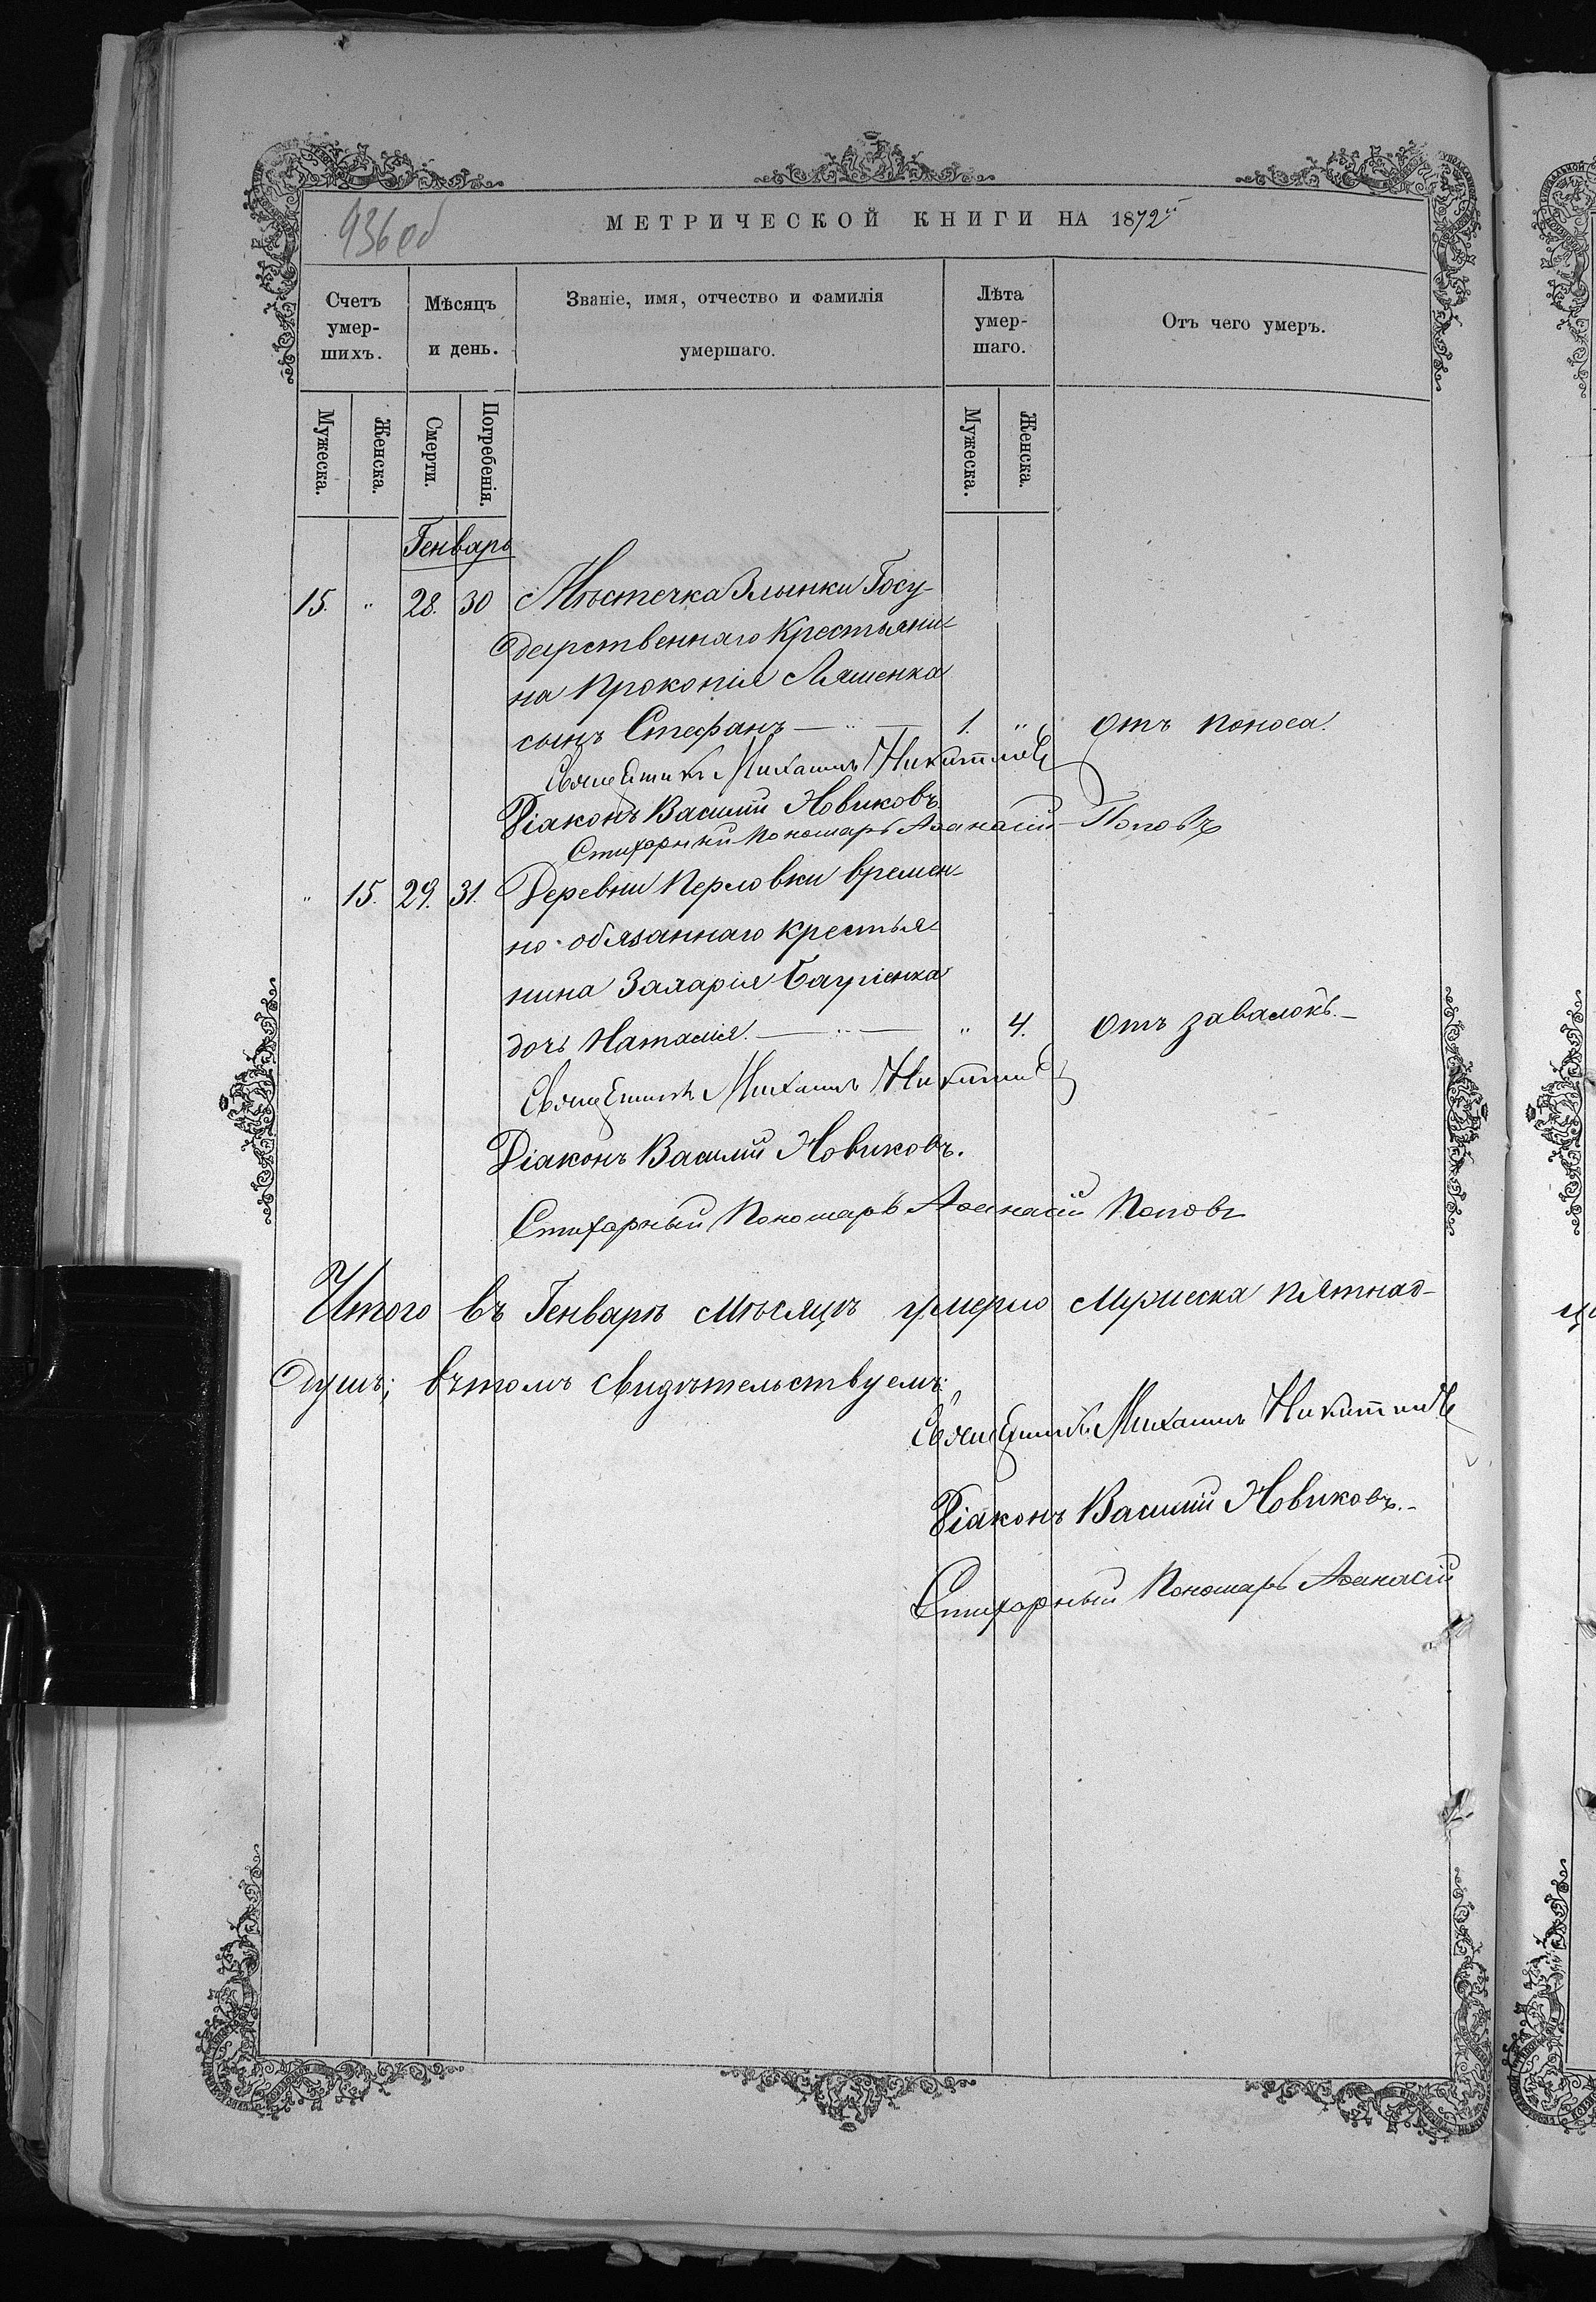 936 об
МЕТРИЧЕСКОЙ КНИГИ НА 1872й
Счетъ умер-шихъ.
Мѣсяцъ и день.
Званіе, имя, отчество и фамилія умершаго.
Лѣта умер-шаго.
Отъ чего умеръ.
Мужеска. Женска. Смерти. Погребенія. Мужеска. Женска.
Генварь
15. " 28. 30 Мѣстечка Злынки Госу-
дарственнаго Крестьяни-
на Прокопія Ляшенка
сынъ Стефанъ — " — 1. " Отъ поноса.
Священникъ Михаилъ Никитинъ
Діаконъ Василій Новиковъ
Стихарный Пономарь Аѳанасій Поповъ
" 15. 29. 31. Деревни Перловки времен-
но-обязаннаго крестья-
нина Захарія
дочь Наталія. — " — " 4. Отъ завалокъ.—
Священникъ Михаилъ Никитинъ
Діаконъ Василій Новиковъ.
Стихарный Пономарь Аѳанасій Поповъ
Итого въ Генварѣ мѣсяцѣ умерло мужеска пятнад-
душъ; въ томъ свидѣтельствуемъ:
Священникъ Михаилъ Никитинъ
Діаконъ Василій Новиковъ.—
Стихарный Пономарь Аѳанасій